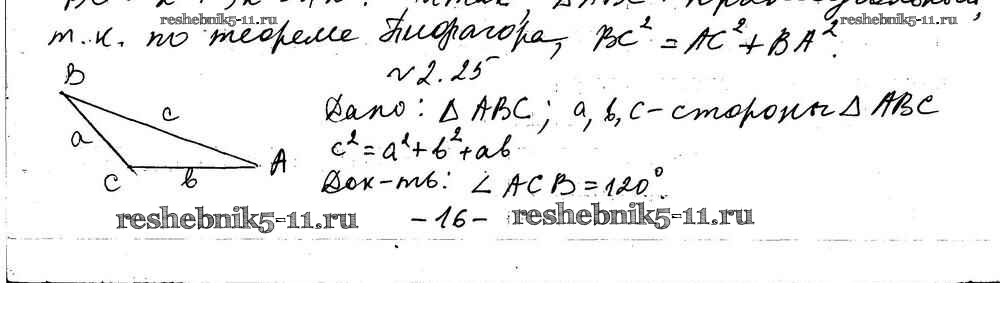 reshebnik5-11.ru
т.к. по теореме Пифагора, BC² = AC² + BA².
№2.25
B
c
a
A
C
b
Дано: △ ABC; a, b, c - стороны △ ABC
c² = a² + b² + ab
Док-ть: ∠ ACB = 120°.
reshebnik5-11.ru
-16-
reshebnik5-11.ru